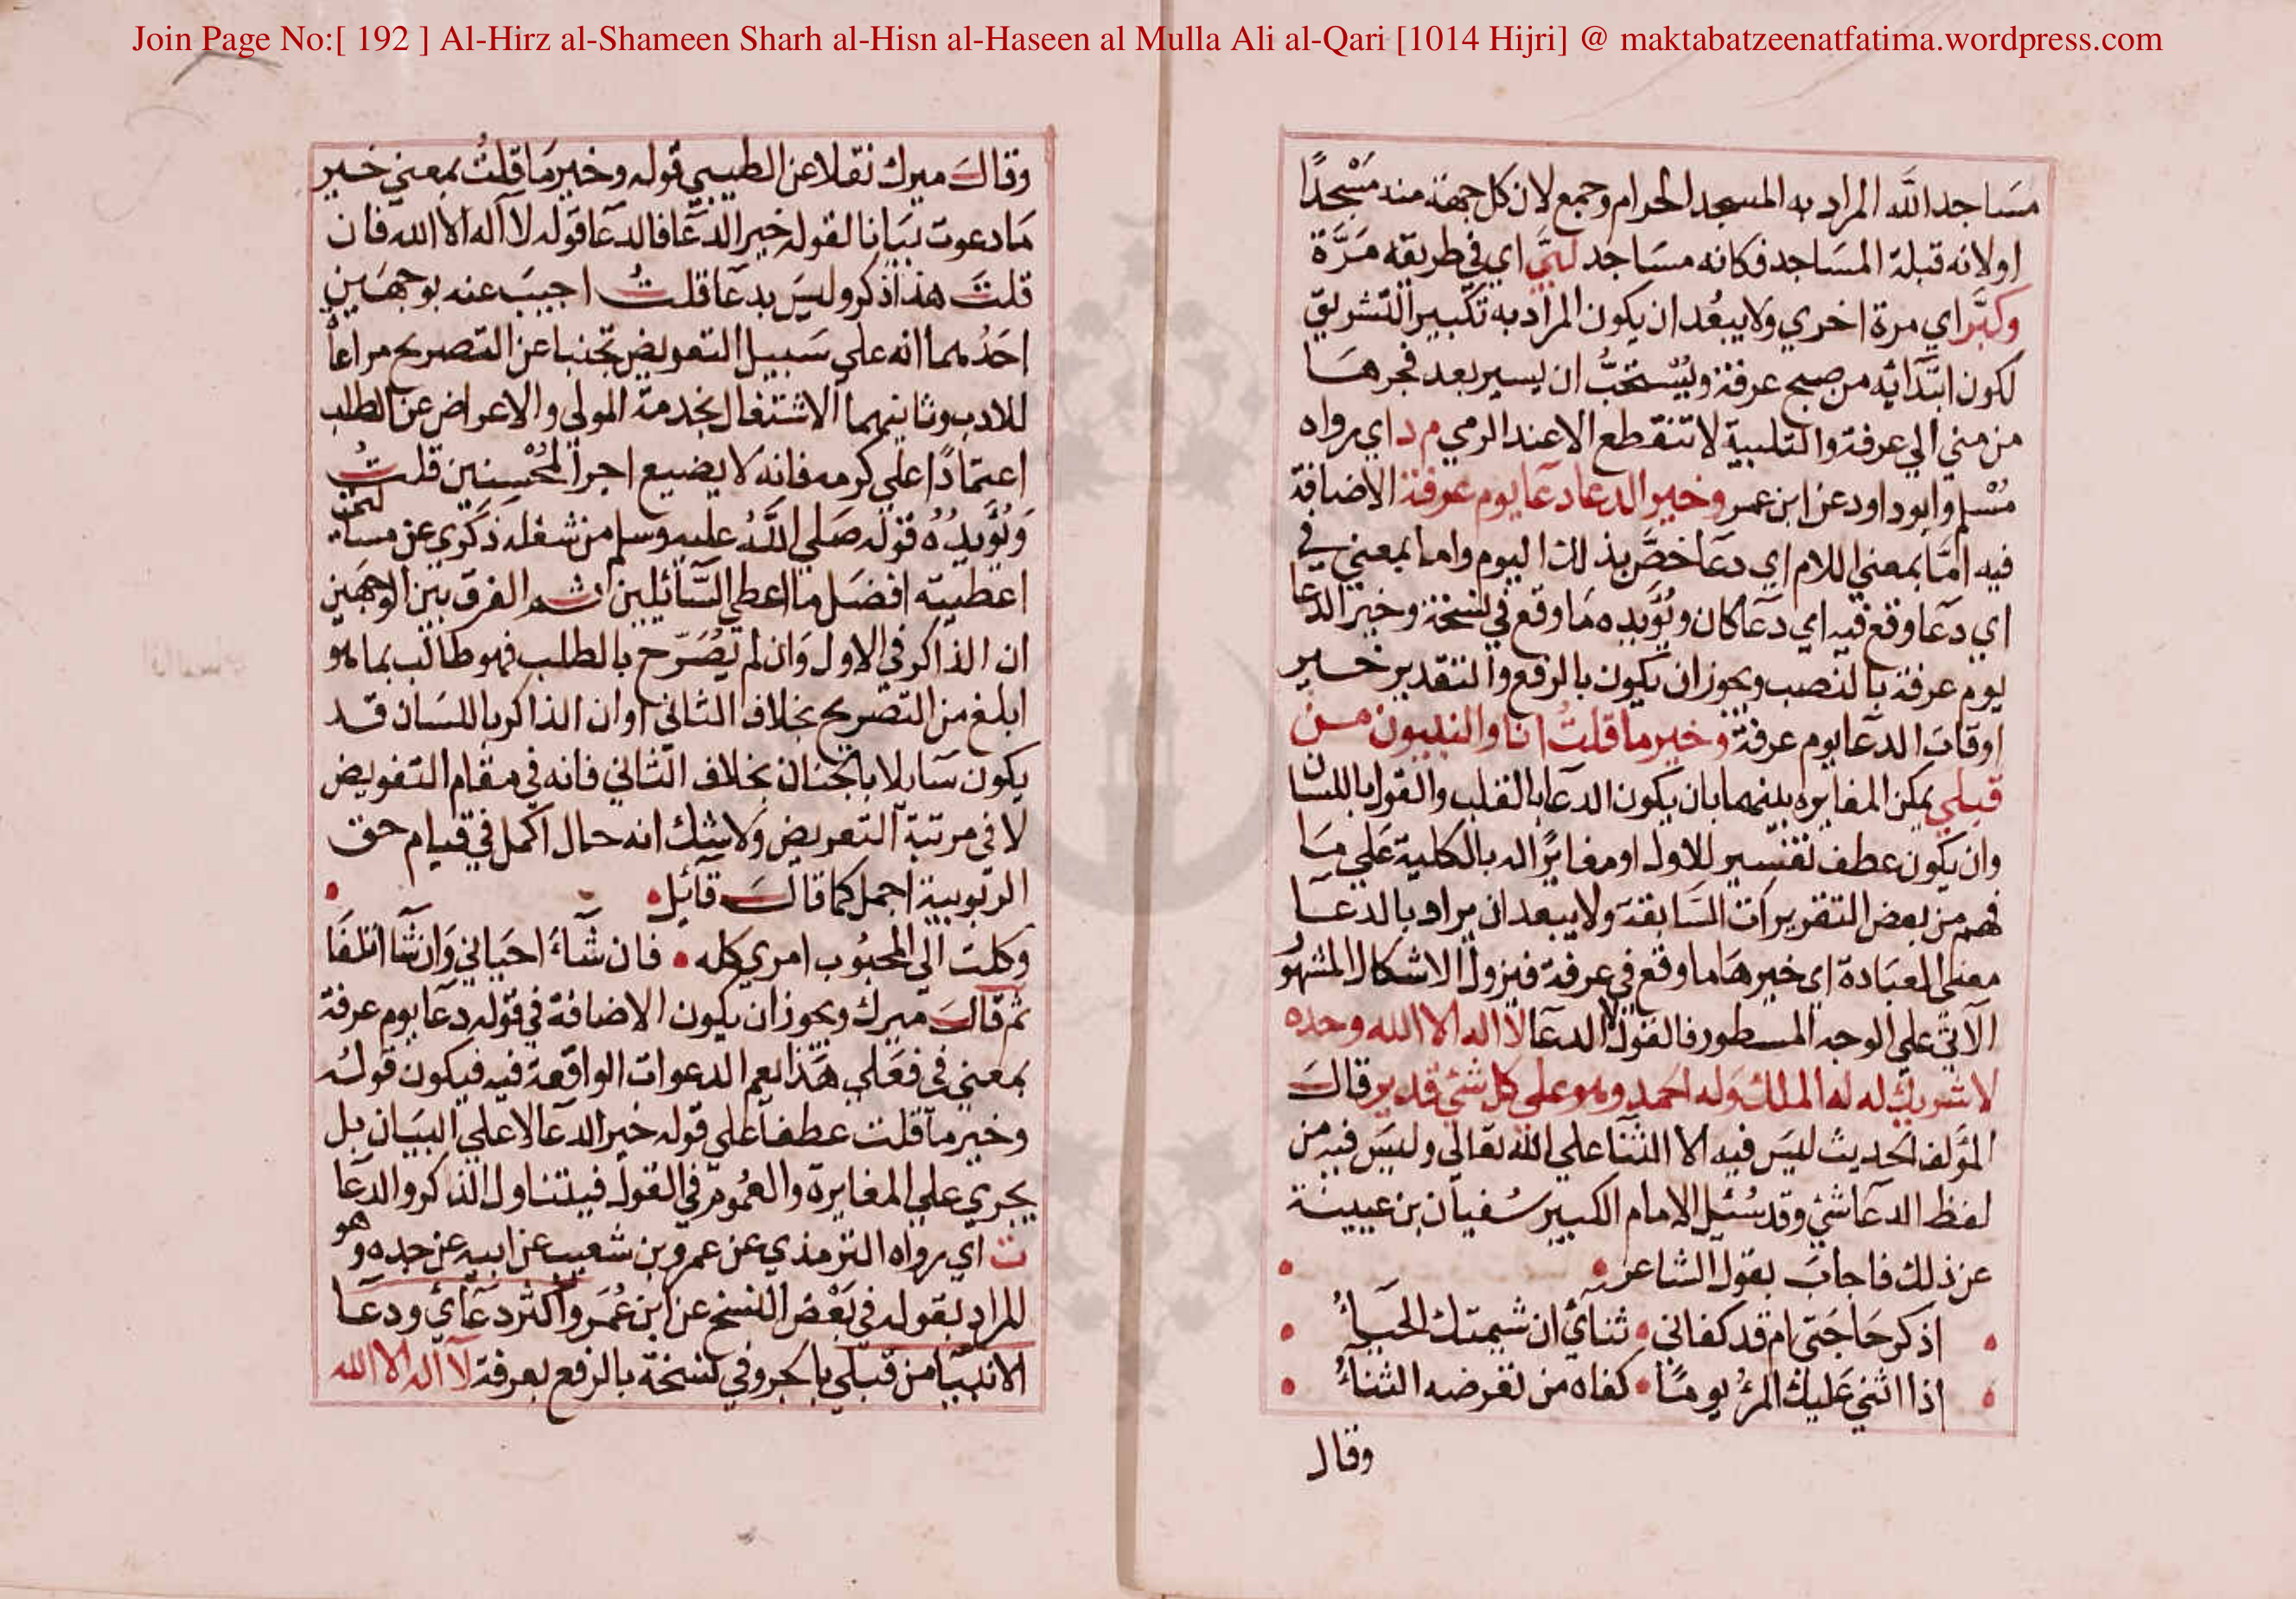 Join Page No:[ 192 ] Al-Hirz al-Shameen Sharh al-Hisn al-Haseen al Mulla Ali al-Qari [1014 Hijri] @ maktabatzeenatfatima.wordpress.com
مسَاجد اللَّه المراد به المسجد الحرام وجمع لان كل جهة منه مَسْجدًا
اولانه قبلة المسَاجد فكانه مسَاجد لبَّى اي في طريقه مَرَّة
وكبَّر اي مرة اخري ولا يبعُد ان يكون المراد به تكبير التشريق
لكون ابتدائه من صبح عرفة ويُسْتحَبُّ ان يسير بعد فجرهَا
من مني الي عرفة والتلبية لا تنقطع الا عند الرمي م د اي رواه
مُسْلم وابو داود عن ابن عمر وخير الدعا دعَا يوم عرفة الاضافة
فيه امَّا بمعني اللام اي دعَا خصَّ بذلك اليوم واما بمعني في
اي دعَا وقع فيه اي دعَا كان ويُؤَيده مَا وقع في نسخة وخير الدعا
يوم عرفة بالنصب ويجوز ان يكون بالرفع والتقدير خير
اوقات الدعَا يوم عرفة وخير ما قلتُ انا والنبيون من
قبلي يمكن المغايرة بينهما بان يكون الدعا بالقلب والقول باللسان
وان يكون عطف تفسير للاول او مغايرًا له بالكلية عَلي مَا
فهم من بعض التقريرات السَابقة ولا يبعد ان يراد بالدعَا
معني العبَادة اي خيرهَا ما وقع في عرفة فيزول الاشكال المشهُو
الآتي علي الوجه المسطور فالقول لا الدعَا لا اله الا الله وحده
لا شريك له له الملك وله الحمد وهو على كل شئ قدير قالَ
المؤلف الحديث ليسَ فيه الا الثنا علي الله تعالي وليسَ فيه من
لفظ الدعَا شئ وقد سُئل الامام الكبير سُفيان بن عيينة
عن ذلك فاجابَ بقول الشاعر
اذكر حَاجَتي ام قد كفاني ثنائي ان شيمتك الحَيَاءُ
اذا اثني عَليك المرءُ يومًا كفاه من تعرضه الثناءُ
وقال
وقالَ ميرك نقلا عن الطيبي قوله وخير مَا قلتُ بمعني خير
مَا دعوت بيَانا لقوله خير الدعَا فالدعَا قوله لا اله الا الله فان
قلتَ هذا ذكر وليسَ بدعَا قلتُ اجيبَ عنه بوجهَين
احَدُهما انه علي سَبيل التعريض تجنبا عن التصريح مراعاْ
للادب وثانيهما الاشتغال بخدمة المولي والاعراض عن الطلب
اعتمَادًا علي كرمه فانه لا يضيع اجر المُحْسنين قلتُ
وَيُؤَيدُه قوله صَلي اللَّهُ عليه وسلم من شغله ذكري عن مسأله
اعطيته افضَل ما اعطي السَّائلين ثم الفرق بين الوجهَين
ان الذاكر في الاول وَان لم يُصَرّح بالطلب فهو طالب بما هو
ابلغ من التصريح بخلاف الثاني او ان الذاكر باللسَان قد
يكون سَايلا بالجنان بخلاف الثاني فانه في مقام التفويض
لا في مرتبة التعريض ولا شك انه حال اكمل في قيام حق
الربوبية اجمل كما قالَ قائل
وكلت الي المحبُوب امري كله فان شَاءَ احيَاني وَان شَا اتلفَا
ثم قالَ ميرك ويجوز ان يكون الاضافة في قوله دعَا يوم عرفة
بمعني في فعَلي هَذا يعم الدعوات الواقعة فيه فيكون قوله
وخير مَا قلت عطفا علي قوله خير الدعَا لا علي البيَان بل
يجري علي المغايرة والعُموم في القول فيتناول الذاكر والدعَا
ت اي رواه الترمذي عن عمرو بن شعيب عن ابيه عن جده وهو
المراد بقوله في بَعْض النسخ عن ابن عُمَر واكثر دعَائي ودعَا
الانبيَا من قبلي بالجر وفي نسخة بالرفع بعرفة لا اله الا الله